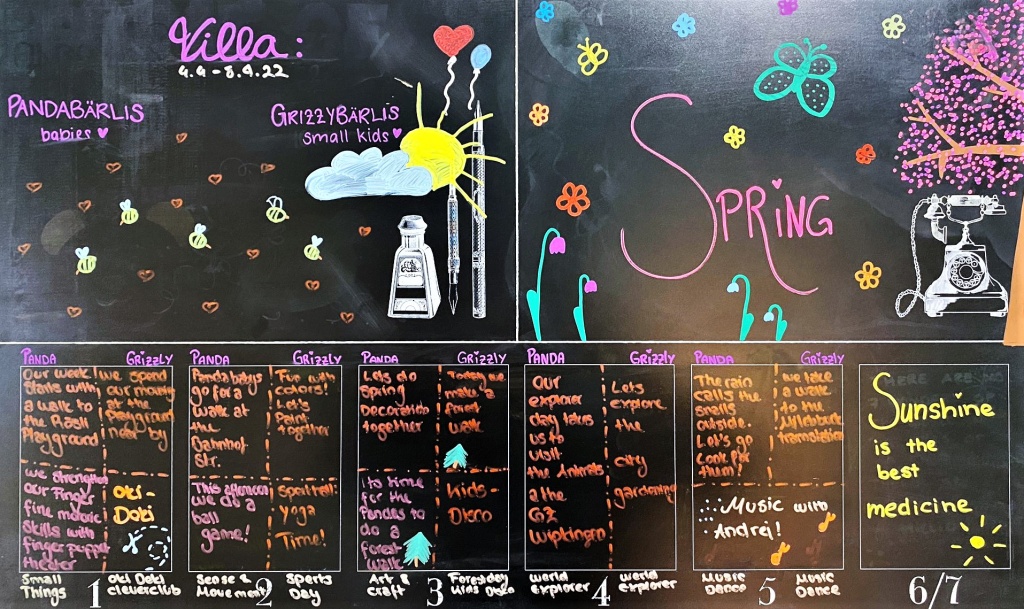 Villa:
4.4 - 8.4.22
PANDABÄRLIS
babies
GRIZZYBÄRLIS
small kids
SPRING
PANDA
GRIZZLY
Our week
starts with
a walk to
the Rösli
Playground
we spend
our morning
at the
playground
near by
we strengthen
our Finger
fine motoric
Skills with
finger puppet
theater
Oki-
Doki
Small
Things
1
Oki Doki
cleverclub
PANDA
GRIZZLY
Panda babys
go for a
walk at
the
Bahnhof
Str.
Fun with
colors!
Let's
Paint
together
This afternoon
we do a
ball
game!
Yoga
Time!
Sense &
Movement
2
Sports
Day
PANDA
GRIZZLY
Lets do
Spring
Decoration
together
Today we
make a
forest
walk
its time
for the
Pandas to
do a
forest
walk
Kids-
Disco
Art &
craft
3
Forestday
Kids Disco
PANDA
GRIZZLY
Our
explorer
day takes
us to
visit
the Animals
a the
GZ
Wipkingen
Lets
explore
the
city
gardening
world
explorer
4
world
explorer
PANDA
GRIZZLY
The rain
calls the
snails
outside.
Let's go
Look for
them!
we take
a walk
to the
Music with
Andrej!
Music
Dance
5
Music
Dance
Sunshine
is the
best
medicine
6/7